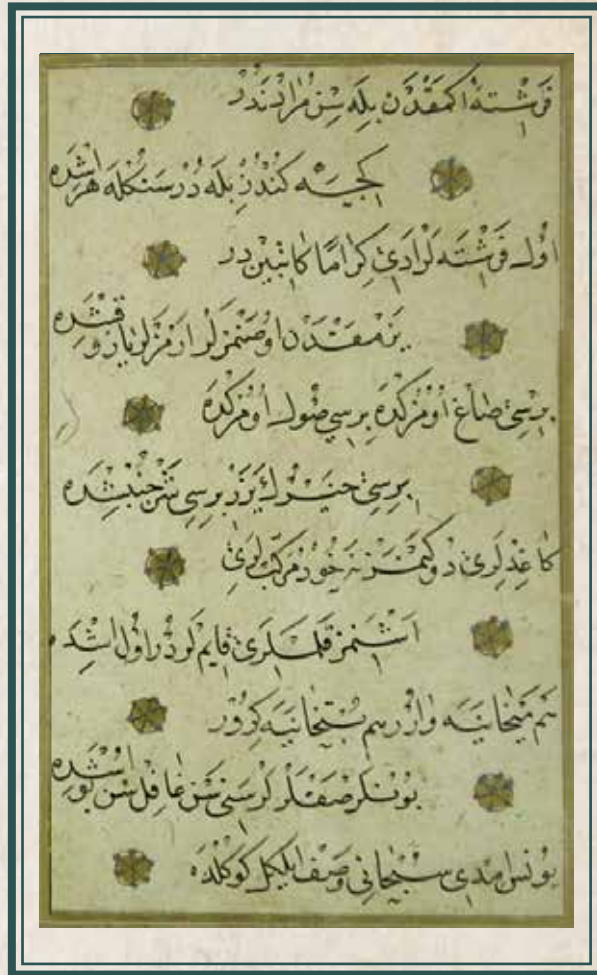 فرشته اكمقدن بيله سن مراددندر
كيجه كندز بيله در سنكله هر اشده
اول فرشته لر ادى كراما كاتبين در
يزمقدن اوصنمزلر ارمزلر ياز و قشده
برسى صاغ اومزكده برسى صول اومزكده
برسى خير ك يزر برسى شر جنبشده
كاغدلرى دوكنمز نه خود مركبلرى
اشنمز قلملرى قايم لردر اول اشده
هم ميخانيه وارر هم بتخانيه كرور
بونلر صقلرلر سنى سن غافلسن بو اشده
يونس امدى سبحانى وصف ايلكل كوكلده